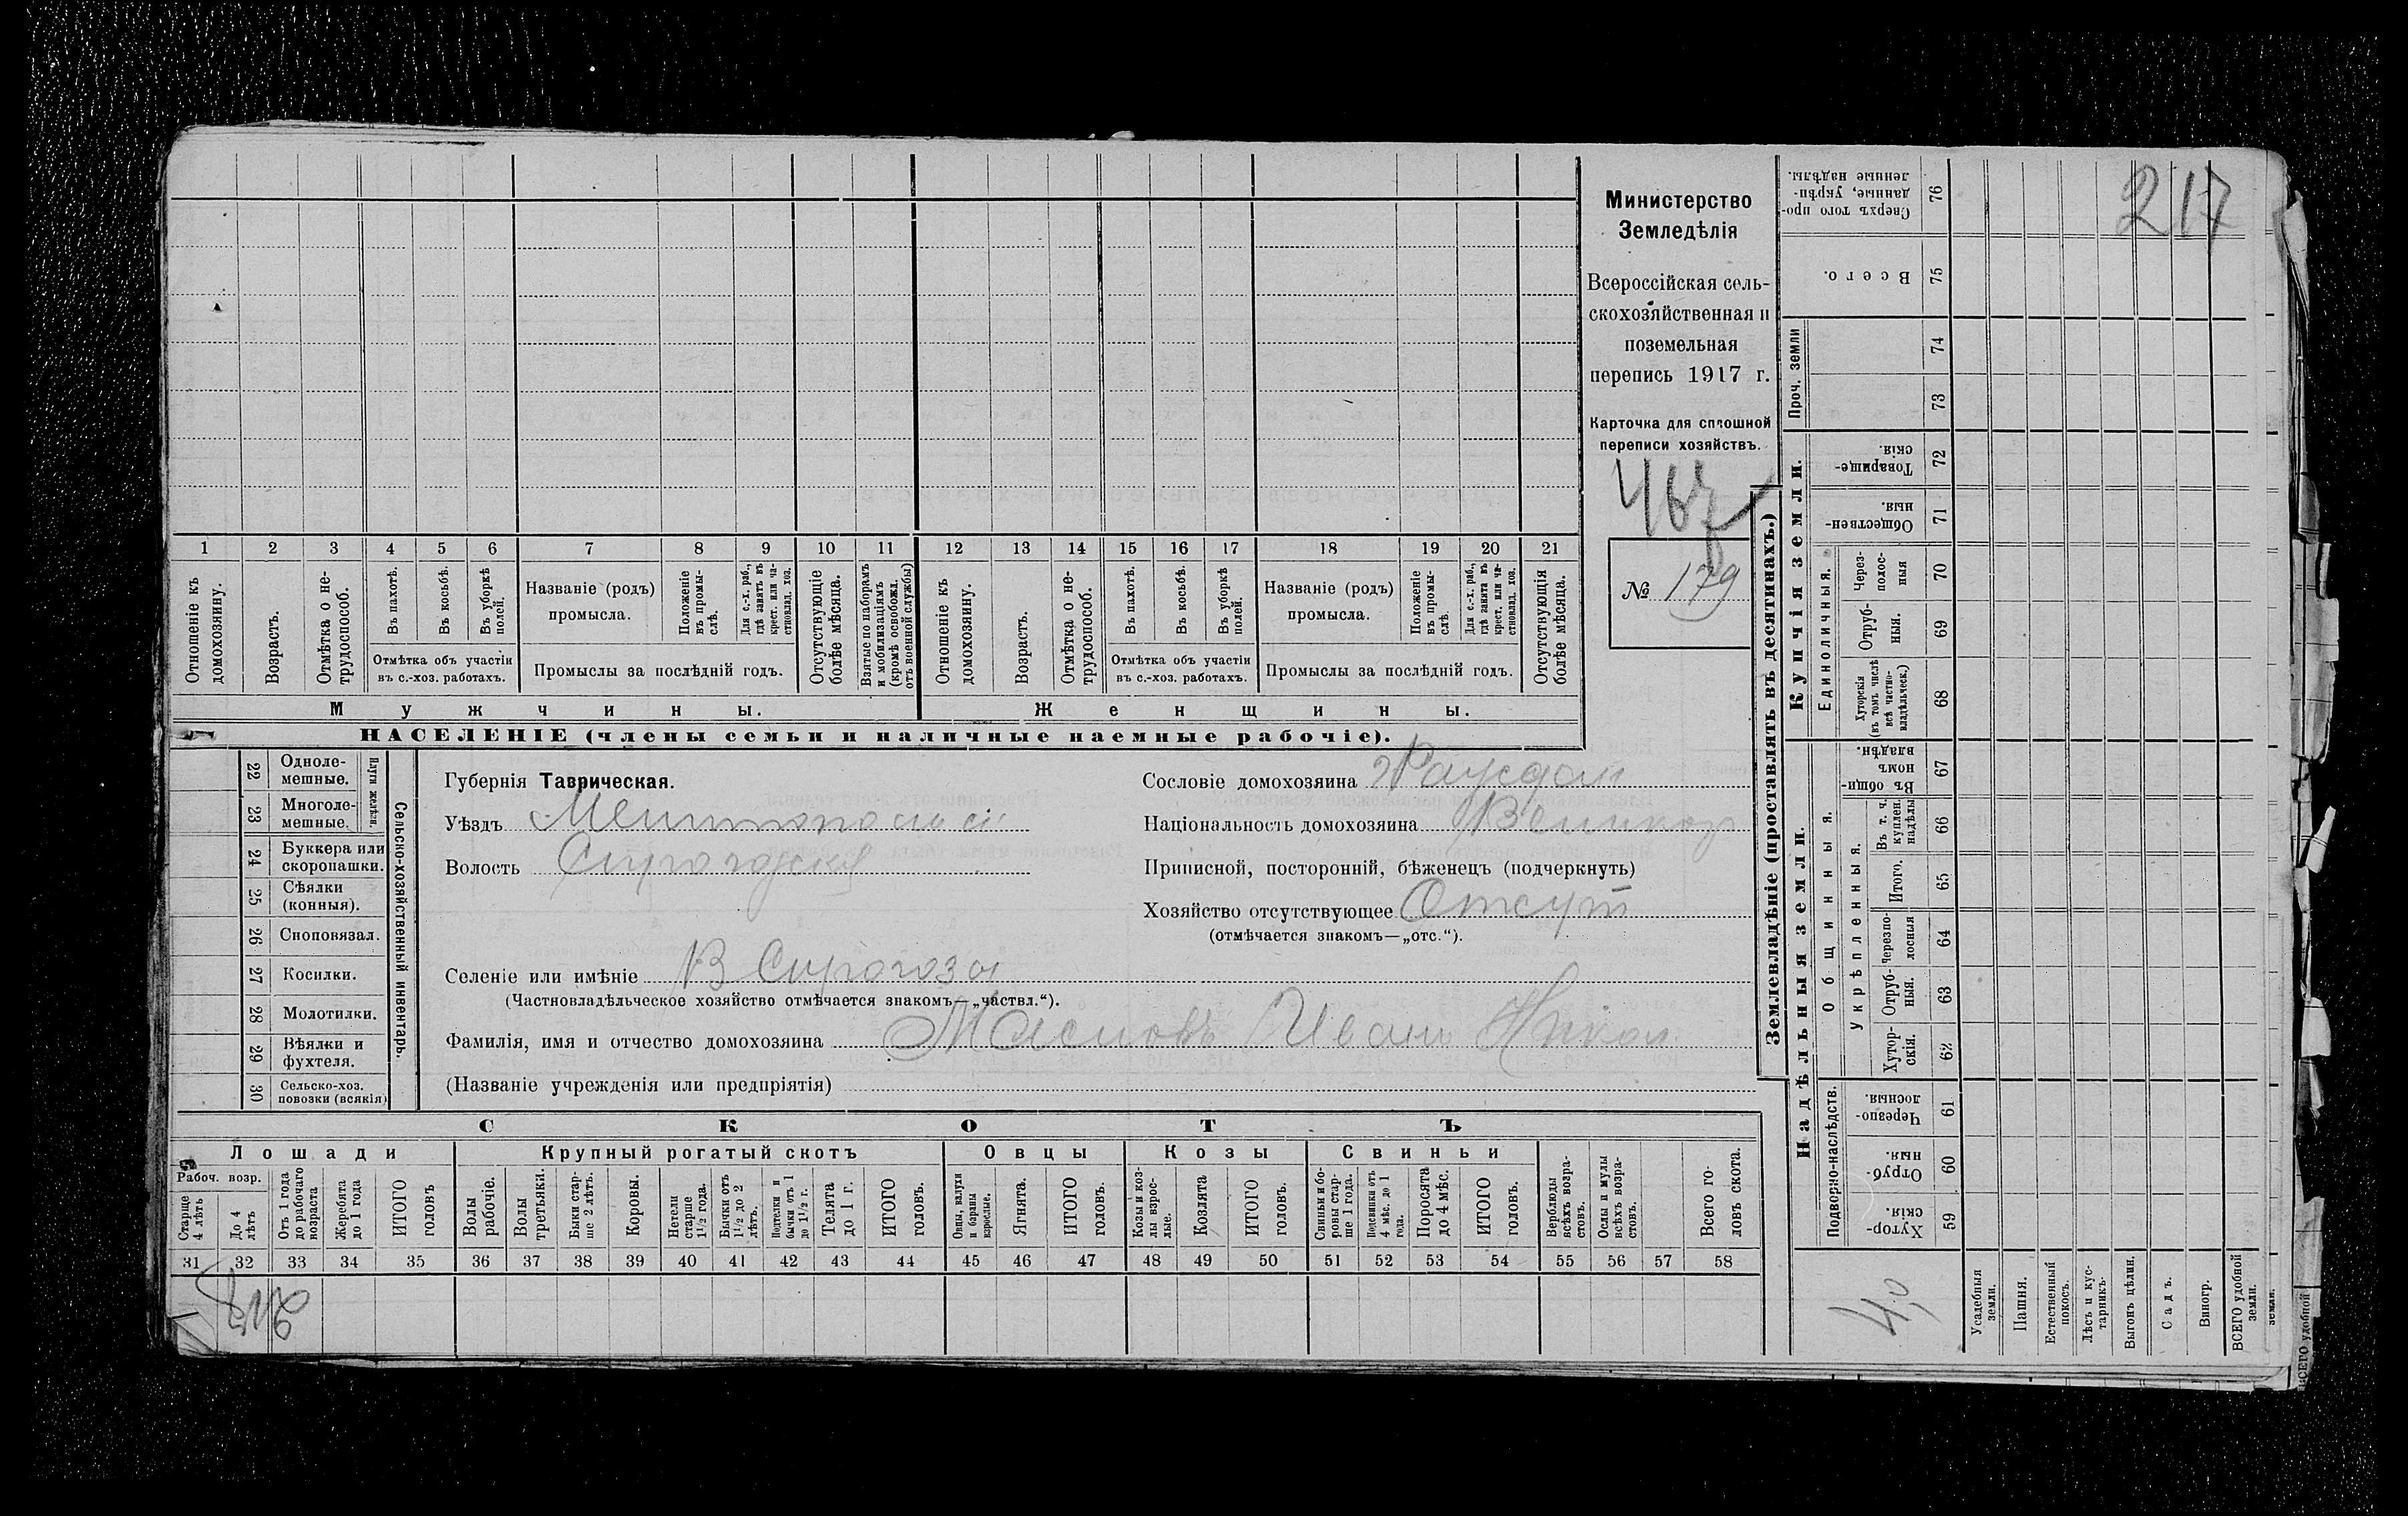 217
Министерство
Земледѣлія
Всероссійская сель-
скохозяйственная и
поземельная
перепись 1917 г.
Карточка для сплошной
переписи хозяйствъ.
№ 179
1 2 3 4 5 6 7 8 9 10 11 12 13 14 15 16 17 18 19 20 21
Отношеніе къ домохозяину.
Возрастъ.
Отмѣтка о не-трудоспособ.
Въ пахотѣ.
Въ косьбѣ.
Въ уборкѣ полей.
Отмѣтка объ участіи
въ с.-хоз. работахъ.
Названіе (родъ)
промысла.
Положеніе въ промы-слѣ.
Для с.-х. раб., гдѣ занятъ въ крест. или ча-стновлад. хоз.
Промыслы за послѣдній годъ.
Отсутствующіе болѣе мѣсяца.
Взятые по наборамъ и мобилизаціямъ (кромѣ освобожд. отъ военной службы)
Отношеніе къ домохозяину.
Возрастъ.
Отмѣтка о не-трудоспособ.
Въ пахотѣ.
Въ косьбѣ.
Въ уборкѣ полей.
Отмѣтка объ участіи
въ с.-хоз. работахъ.
Названіе (родъ)
промысла.
Положеніе въ промы-слѣ.
Для с.-х. раб., гдѣ занята въ крест. или ча-стновлад. хоз.
Промыслы за послѣдній годъ.
Отсутствующія болѣе мѣсяца.
Мужчины.
Женщины.
НАСЕЛЕНІЕ (члены семьи и наличные наемные рабочіе).
Сельско-хозяйственный инвентарь.
Плуги желѣзн.
22 Одноле-мешные.
23 Многоле-мешные.
24 Буккера или скоропашки.
25 Сѣялки (конныя).
26 Сноповязал.
27 Косилки.
28 Молотилки.
29 Вѣялки и фухтеля.
30 Сельско-хоз. повозки (всякія)
Губернія Таврическая.
Уѣздъ
Волость
Селеніе или имѣніе В Сирогозы
(Частновладѣльческое хозяйство отмѣчается знакомъ—„частвл.“).
Фамилія, имя и отчество домохозяина Масловъ Иван Никол.
(Названіе учрежденія или предпріятія)
Сословіе домохозяина Граждан
Національность домохозяина Великор
Приписной, посторонній, бѣженецъ (подчеркнуть)
Хозяйство отсутствующее Отсут
(отмѣчается знакомъ—„отс.“).
СКОТЪ
Лошади
Крупный рогатый скотъ
Овцы
Козы
Свиньи
Рабоч. возр.
Старше 4 лѣтъ
До 4 лѣтъ
Отъ 1 года до рабочаго возраста
Жеребята до 1 года
ИТОГО головъ
Волы рабочіе.
Волы третьяки.
Быки стар-ше 2 лѣтъ.
Коровы.
Нетели старше 1½ года.
Бычки отъ 1½ до 2 лѣтъ.
Подтелки и бычки отъ 1 до 1½ г.
Телята до 1 г.
ИТОГО головъ.
Овцы, валухи и бараны взрослые.
Ягнята.
ИТОГО головъ.
Козы и коз-лы взрос-лые.
Козлята
ИТОГО головъ.
Свиньи и бо-ровы стар-ше 1 года.
Подсвинки отъ 4 мѣс. до 1 года.
Поросята до 4 мѣс.
ИТОГО головъ.
Верблюды всѣхъ возра-стовъ.
Ослы и мулы всѣхъ возра-стовъ.
Всего го-ловъ скота.
31 32 33 34 35 36 37 38 39 40 41 42 43 44 45 46 47 48 49 50 51 52 53 54 55 56 57 58
Землевладѣніе (проставлять въ десятинахъ.)
Надѣльныя земли.
Купчія земли.
Проч. земли
Подворно-наслѣдств.
Общинныя.
Укрѣпленныя.
Единоличныя.
76 Сверхъ того про-данные, укрѣп-ленные надѣлы.
75 Всего.
74
73
72 Товарище-скія.
71 Обществен-ныя.
70 Через-полос-ныя
69 Отруб-ныя.
68 Хуторскія (въ томъ числѣ всѣ частно-владѣльческ.)
67 Въ общи-номъ владѣн.
66 Въ т. ч. куплен. надѣлы
65 Итого.
64 Черезпо-лосныя
63 Отруб-ныя.
62 Хутор-скія.
61 Черезпо-лосныя.
60 Отруб-ныя.
59 Хутор-скія.
Усадебныя земли.
Пашня.
Естественный покосъ.
Лѣсъ и кус-тарникъ.
Выгонъ цѣлин.
Садъ.
Виногр.
ВСЕГО удобной земли.